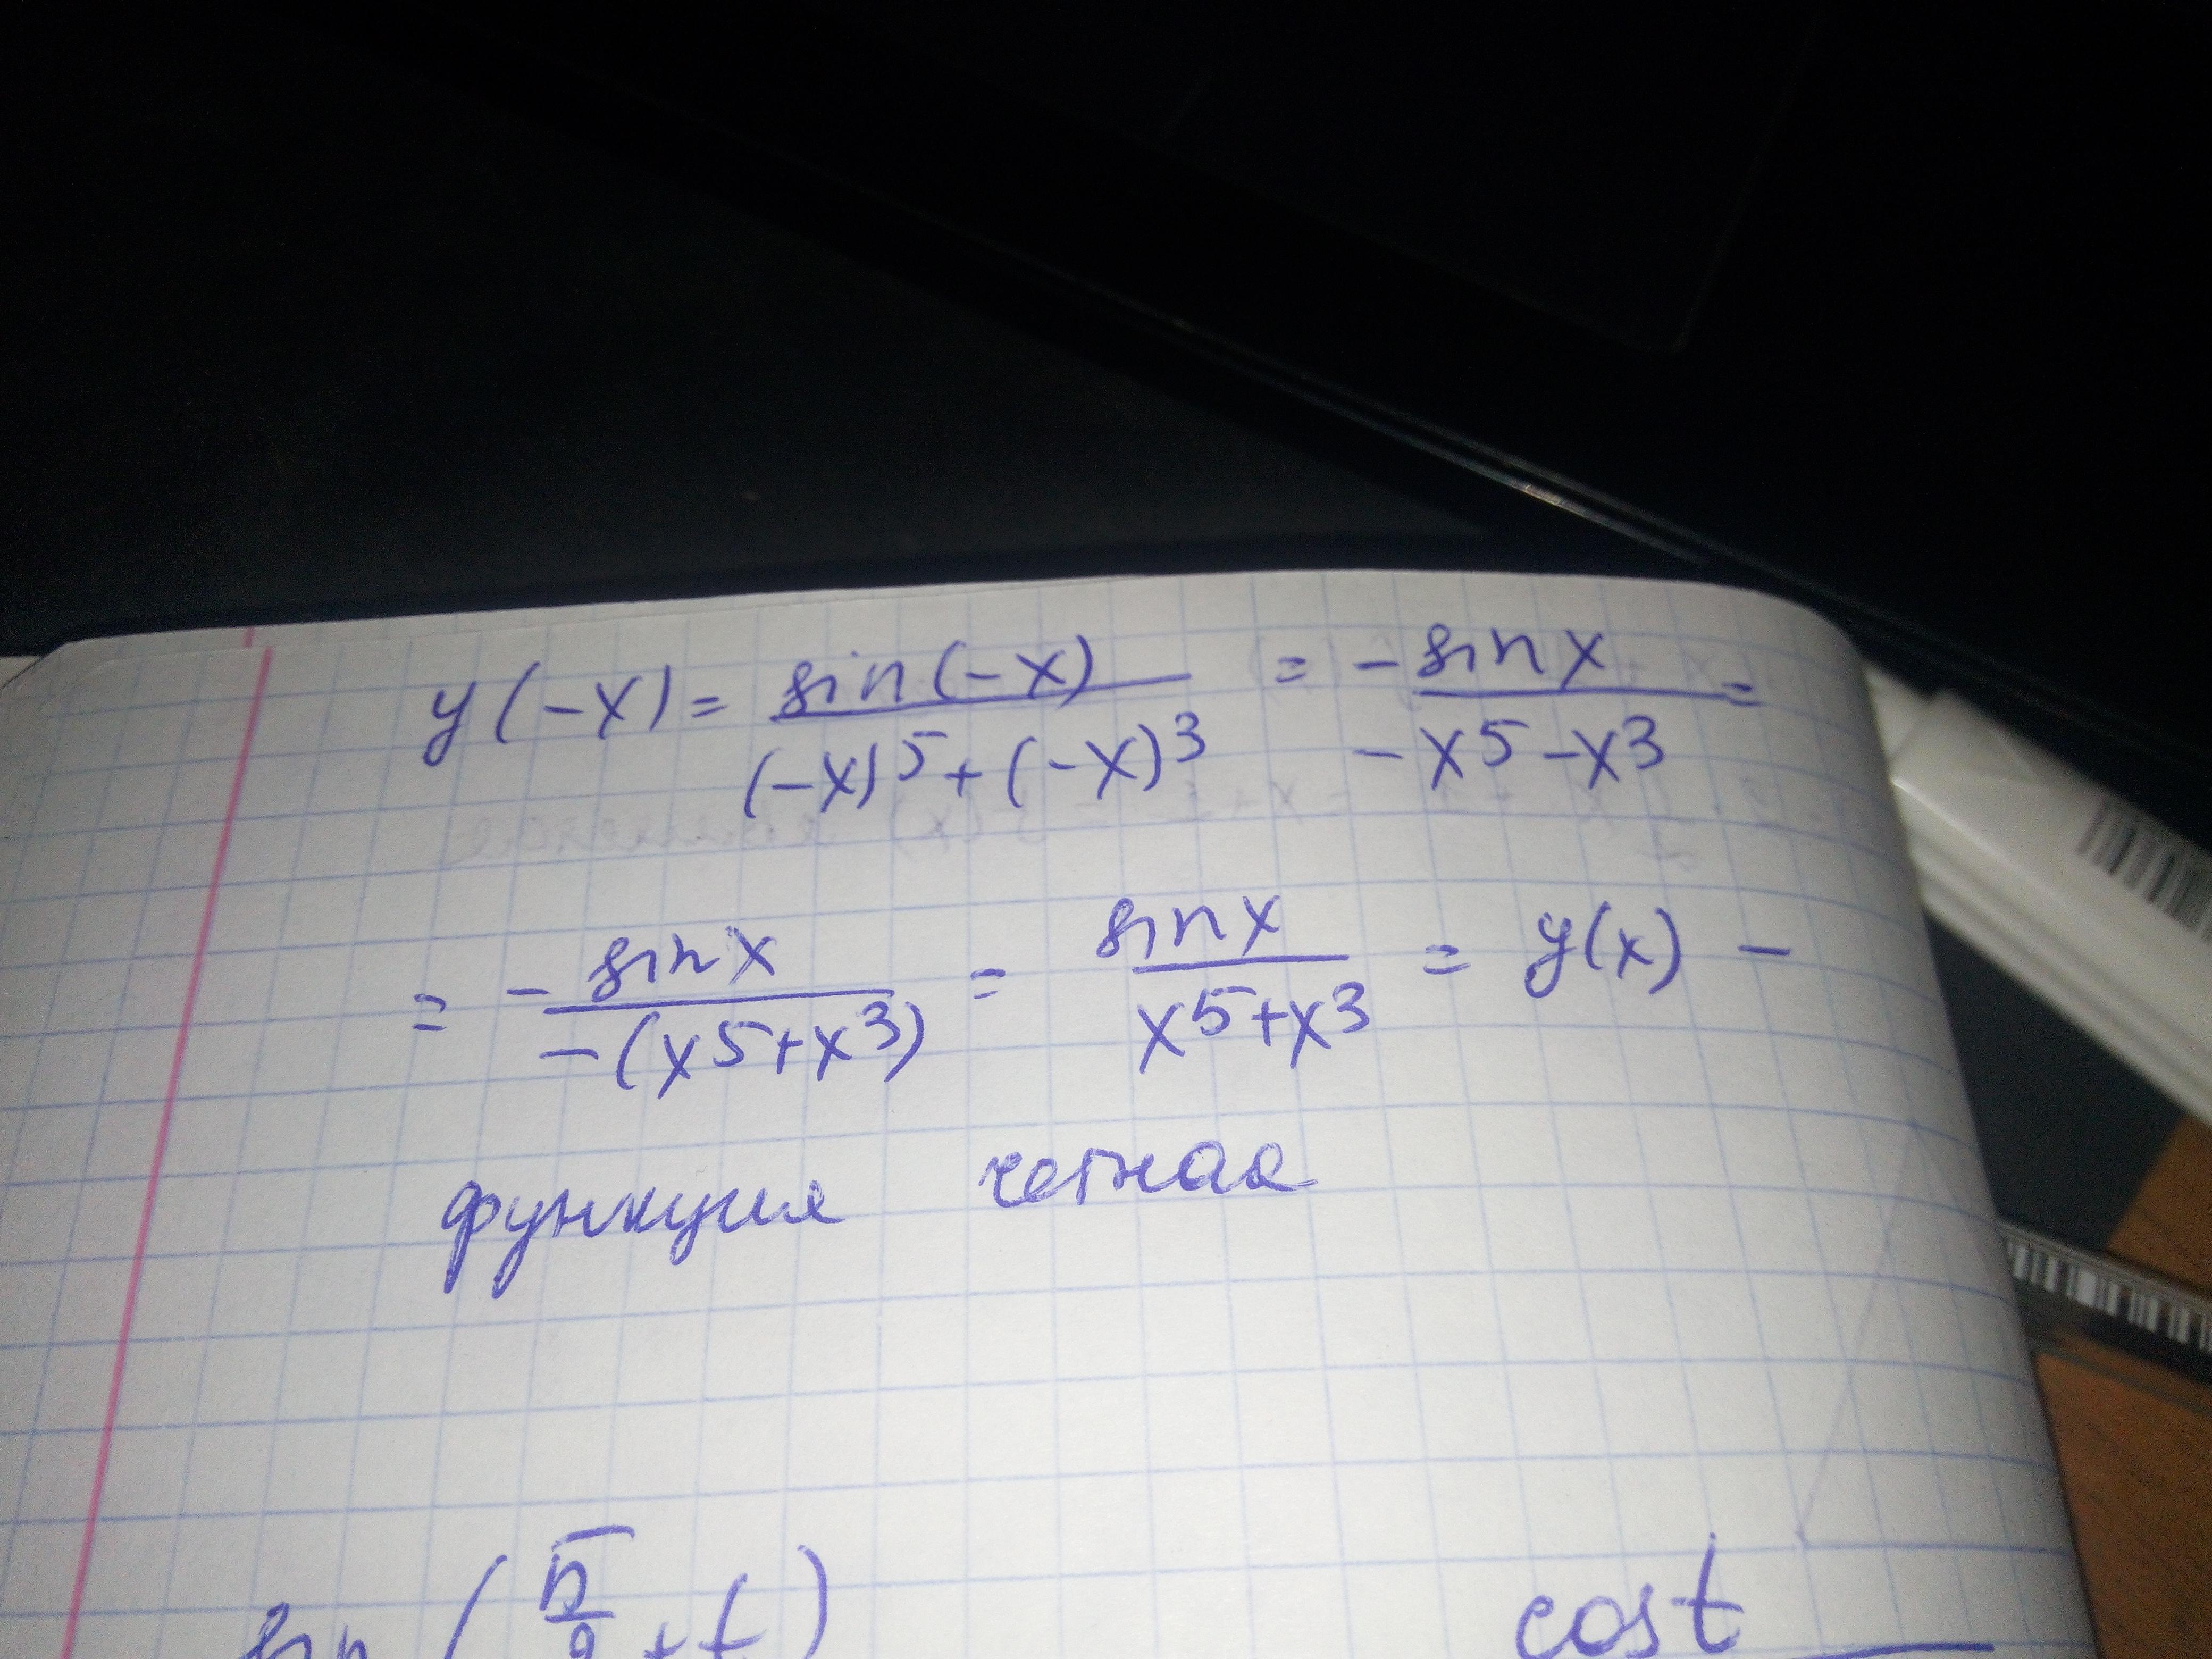 y(-x) = sin(-x) / ((-x)^5 + (-x)^3) = -sin x / (-x^5 - x^3) =
= -sin x / (-(x^5 + x^3)) = sin x / (x^5 + x^3) = y(x) -
функция четная
sin (π/2 + t) cos t